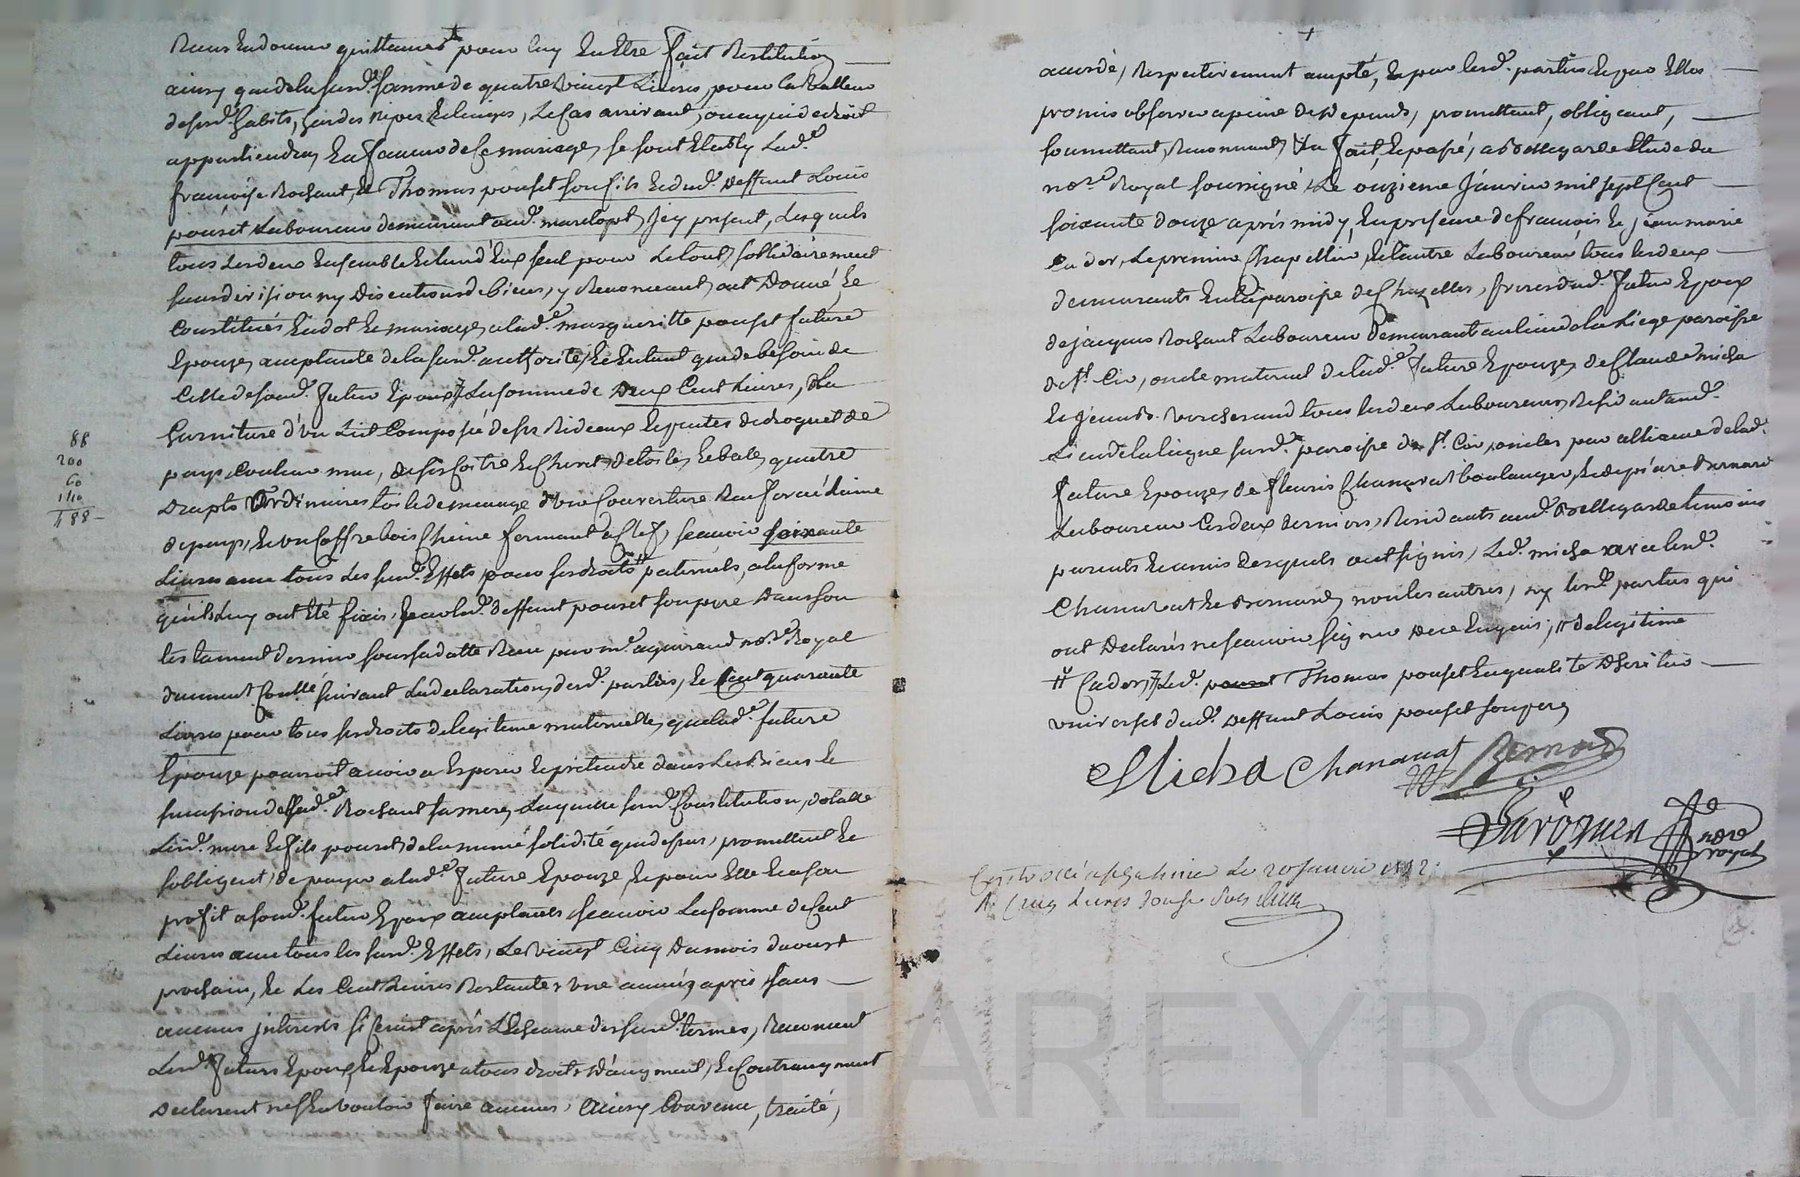 Recus en donner quittances pour luy en Etre fait Restitution
ainsy que de la surd.e somme de quatre vingt Livres, pour la valleur
de surd. habits, hardes nipes et linges, Le cas arrivant, ou a qui de droit
appartiendra, En faveur de Ce mariage, se sont Etably Lad.e
francoise Rochant, et Thomas pouset son fils et dud. Deffunt Louis
pouset Laboureur demeurant aud. marclopt, Jcy present, Lesquels
tous Les deux Ensemble et l'un d'Eux seul pour Le tout, sollidairement
sans division ny Discutions de biens, y Renoncant, ont Donné, Et
Constitués En dot Et mariage a lad.e margueritte pouset future
Epouze, acceptante de la sus.d authorité, Et Entant que de besoin de
Celle de son d. futur Epoux, La somme de Deux Cent Livres, La
Garniture d'un Lit Composée de ses Rideaux Et pentes de droguet de
pays, Couleur
Drapts ordinaires toile de menage d'une Couverture
de pays, Et un Coffre bois Chene fermant a Clef, scavoir soixante
Livres avec tous Les surd. Effets, pour ses droits paternels, a la forme
qu'ils Luy ont Eté fixés, par led. deffunt pouset son pere Dans son
testament dernier sous sa datte Recu par m.e aguiraud no.re Royal
suivant La declaration, desd. parties, Et Cent quarante
Livres pour tous ses droits de legitime maternelle, que lad.e future
Epouze pourroit avoir a Esperer Et pretendre dans Les Biens Et
succession de lad.e Rochant sa mere, Laquelle surd. Constitution, dotalle
Lesd. mere Et fils pouset, de la meme solidité que dessus, promettent Et
s'obligent, de payer a lad.e future Epouze, Et pour Elle En son
profit a son d. futur Epoux acceptants scavoir La somme de Cent
Livres avec tous les surd. Effets, Le vingt Cinq Du mois d'aoust
prochain, Et Les Cent Livres Restantes une année apres sans
aucuns jnterets si Ce n'est apres L'Echeance des surd. termes, Renoncent
Lesd. futurs Epoux Et Epouze a tous droits D'augment, Et Contraugment
Declarent n'En vouloir faire aucuns, Ainsy Convenu, traité,
88
200
60
140
488
accordé, Respectivement accepté, Et par lesd. parties Et que Elles
promis observer a peine de Depends, promettant, obligeant,
soumettant, Renoncant, &a fait, Et passé, a Bellegarde Etude du
no.re Royal soussigné, Le onzieme Janvier mil sept Cent
soixante douze apres midy, En presence de francois Et jean marie
Cador, Le premier Chapellier, Et l'autre Laboureur tous les deux
demeurants En la paroisse de Chazelles, freres dud. futur Epoux
de jacques Rochant Laboureur demeurant au lieu de la Liegue paroisse
de S.t Cir, oncle maternel de lad.e future Epouze, de Claude micha
Et Verchерand tous les deux Laboureurs Residants aud.
Lieu de la Liegue surd.e paroisse de S.t Cir, oncles par alliance de lad.
future Epouze, de fleuris Chanavat boulanger, Et de piere Bernard
Laboureur Les deux derniers, Residants aud. Bellegarde temoins
parents Et amis Lesquels ont signés, Led. micha avec lesd.
Chanavat Et Bernard, non les autres, ny lesd. parties qui
ont Declarés ne scavoir signer De ce Enquis; # de legitime
# Cador, led. Thomas pouset En qualité D'heritier
universel dud. Deffunt Louis pouset son pere
Micha Chanavat Bernard
no.re
royal
Controllé a S.t Galmier Le 20 Janvier 1772
R. Cinq Livres douze sols
HAREYRON